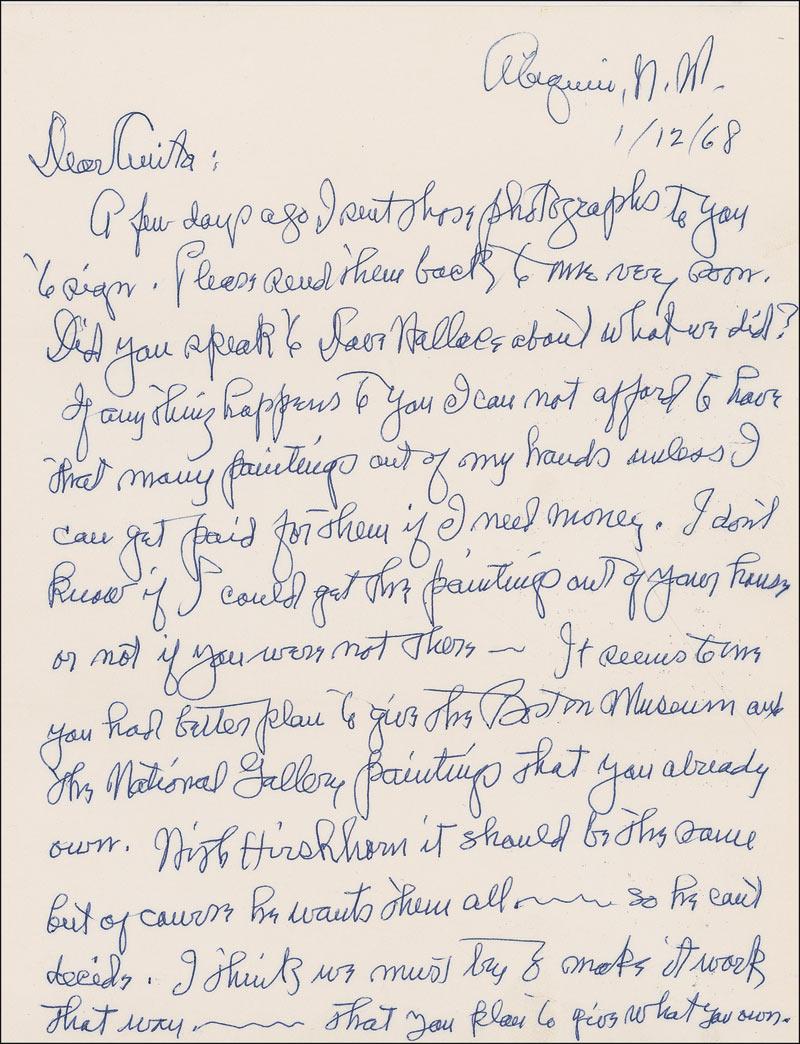 Abiquiu, N. M.
1/12/68
Dear Anita:
A few days ago I sent those photographs to you
to sign. Please send them back to me very soon.
Did you speak to Dave Wallace about what we did?
If anything happens to you I can not afford to have
that many paintings out of my hands unless I
can get paid for them if I need money. I don't
know if I could get the paintings out of your house
or not if you were not there ~ It seems to me
you had better plan to give the Boston Museum and
the National Gallery paintings that you already
own. With Hirshhorn it should be the same
but of course he wants them all ~~~ so he can't
decide. I think we must try to make it work
that way. ~~~ that you plan to give what you own.